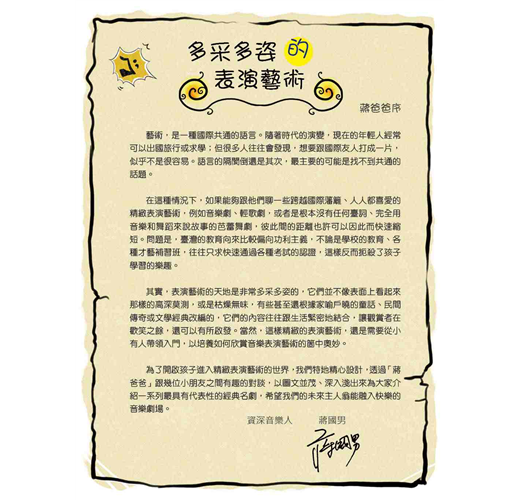 多采多姿的
表演藝術
蔣爸爸序
藝術，是一種國際共通的語言。隨著時代的演變，現在的年輕人經常
可以出國旅行或求學；但很多人往往會發現，想要跟國際友人打成一片，
似乎不是很容易。語言的隔閡倒還是其次，最主要的可能是找不到共通的
話題。
在這種情況下，如果能夠跟他們聊一些跨越國際藩籬、人人都喜愛的
精緻表演藝術，例如音樂劇、輕歌劇，或者是根本沒有任何臺詞、完全用
音樂和舞蹈來說故事的芭蕾舞劇，彼此間的距離也許可以因此而快速縮
短。問題是，臺灣的教育向來比較偏向功利主義，不論是學校的教育、各
種才藝補習班，往往只求快速通過各種考試的認證，這樣反而扼殺了孩子
學習的樂趣。
其實，表演藝術的天地是非常多采多姿的，它們並不像表面上看起來
那樣的高深莫測，或是枯燥無味，有些甚至還根據家喻戶曉的童話、民間
傳奇或文學經典改編的，它們的內容往往跟生活緊密地結合，讓觀賞者在
歡笑之餘，還可以有所啟發。當然，這樣精緻的表演藝術，還是需要從小
有人帶領入門，以培養如何欣賞音樂表演藝術的箇中奧妙。
為了開啟孩子進入精緻表演藝術的世界，我們特地精心設計，透過「蔣
爸爸」跟幾位小朋友之間有趣的對談，以圖文並茂、深入淺出來為大家介
紹一系列最具有代表性的經典名劇，希望我們的未來主人翁能融入快樂的
音樂劇場。
資深音樂人　蔣國男
蔣國男